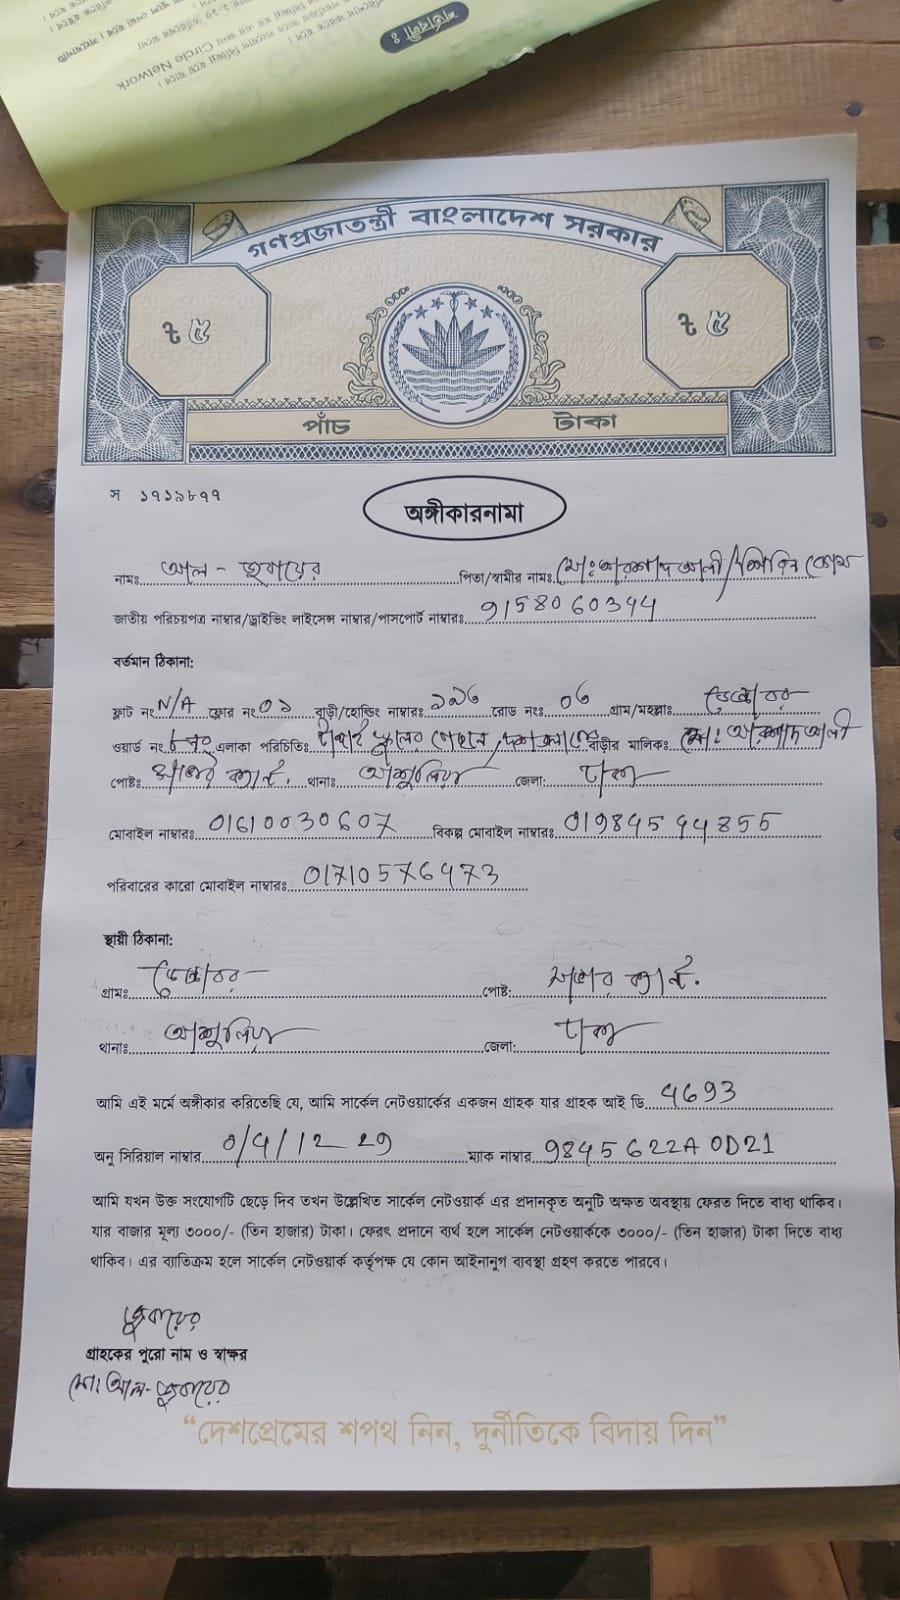 শর্তাবলী :
Circle Network
গণপ্রজাতন্ত্রী বাংলাদেশ সরকার
৳ ৫ ৳ ৫
পাঁচ টাকা
স ১৭১৯৮৭৭
অঙ্গীকারনামা
নামঃ আল - জুবায়ের পিতা/স্বামীর নামঃ মোঃ আরশাদ আলী /
জাতীয় পরিচয়পত্র নাম্বার/ড্রাইভিং লাইসেন্স নাম্বার/পাসপোর্ট নাম্বারঃ 9158060344
বর্তমান ঠিকানা:
ফ্লাট নং N/A ফ্লোর নং ০১ বাড়ী/হোল্ডিং নাম্বারঃ ১৯৬ রোড নংঃ ০৬ গ্রাম/মহল্লাঃ
ওয়ার্ড নং এলাকা পরিচিতিঃ স্কুলের পেছনে, বাড়ীর মালিকঃ মোঃ আরশাদ আলী
পোষ্টঃ থানাঃ আশুলিয়া জেলা: ঢাকা
মোবাইল নাম্বারঃ 01610030607 বিকল্প মোবাইল নাম্বারঃ 01984544855
পরিবারের কারো মোবাইল নাম্বারঃ 01710576473
স্থায়ী ঠিকানা:
গ্রামঃ পোষ্ট:
থানাঃ আশুলিয়া জেলা: ঢাকা
আমি এই মর্মে অঙ্গীকার করিতেছি যে, আমি সার্কেল নেটওয়ার্কের একজন গ্রাহক যার গ্রাহক আই ডি 4693
অনু সিরিয়াল নাম্বার ম্যাক নাম্বার 9845622A0D21
আমি যখন উক্ত সংযোগটি ছেড়ে দিব তখন উল্লেখিত সার্কেল নেটওয়ার্ক এর প্রদানকৃত অনুটি অক্ষত অবস্থায় ফেরত দিতে বাধ্য থাকিব।
যার বাজার মূল্য ৩০০০/- (তিন হাজার) টাকা। ফেরৎ প্রদানে ব্যর্থ হলে সার্কেল নেটওয়ার্ককে ৩০০০/- (তিন হাজার) টাকা দিতে বাধ্য
থাকিব। এর ব্যাতিক্রম হলে সার্কেল নেটওয়ার্ক কর্তৃপক্ষ যে কোন আইনানুগ ব্যবস্থা গ্রহণ করতে পারবে।
জুবায়ের
গ্রাহকের পুরো নাম ও স্বাক্ষর
মোঃ আল-জুবায়ের
“দেশপ্রেমের শপথ নিন, দুর্নীতিকে বিদায় দিন”